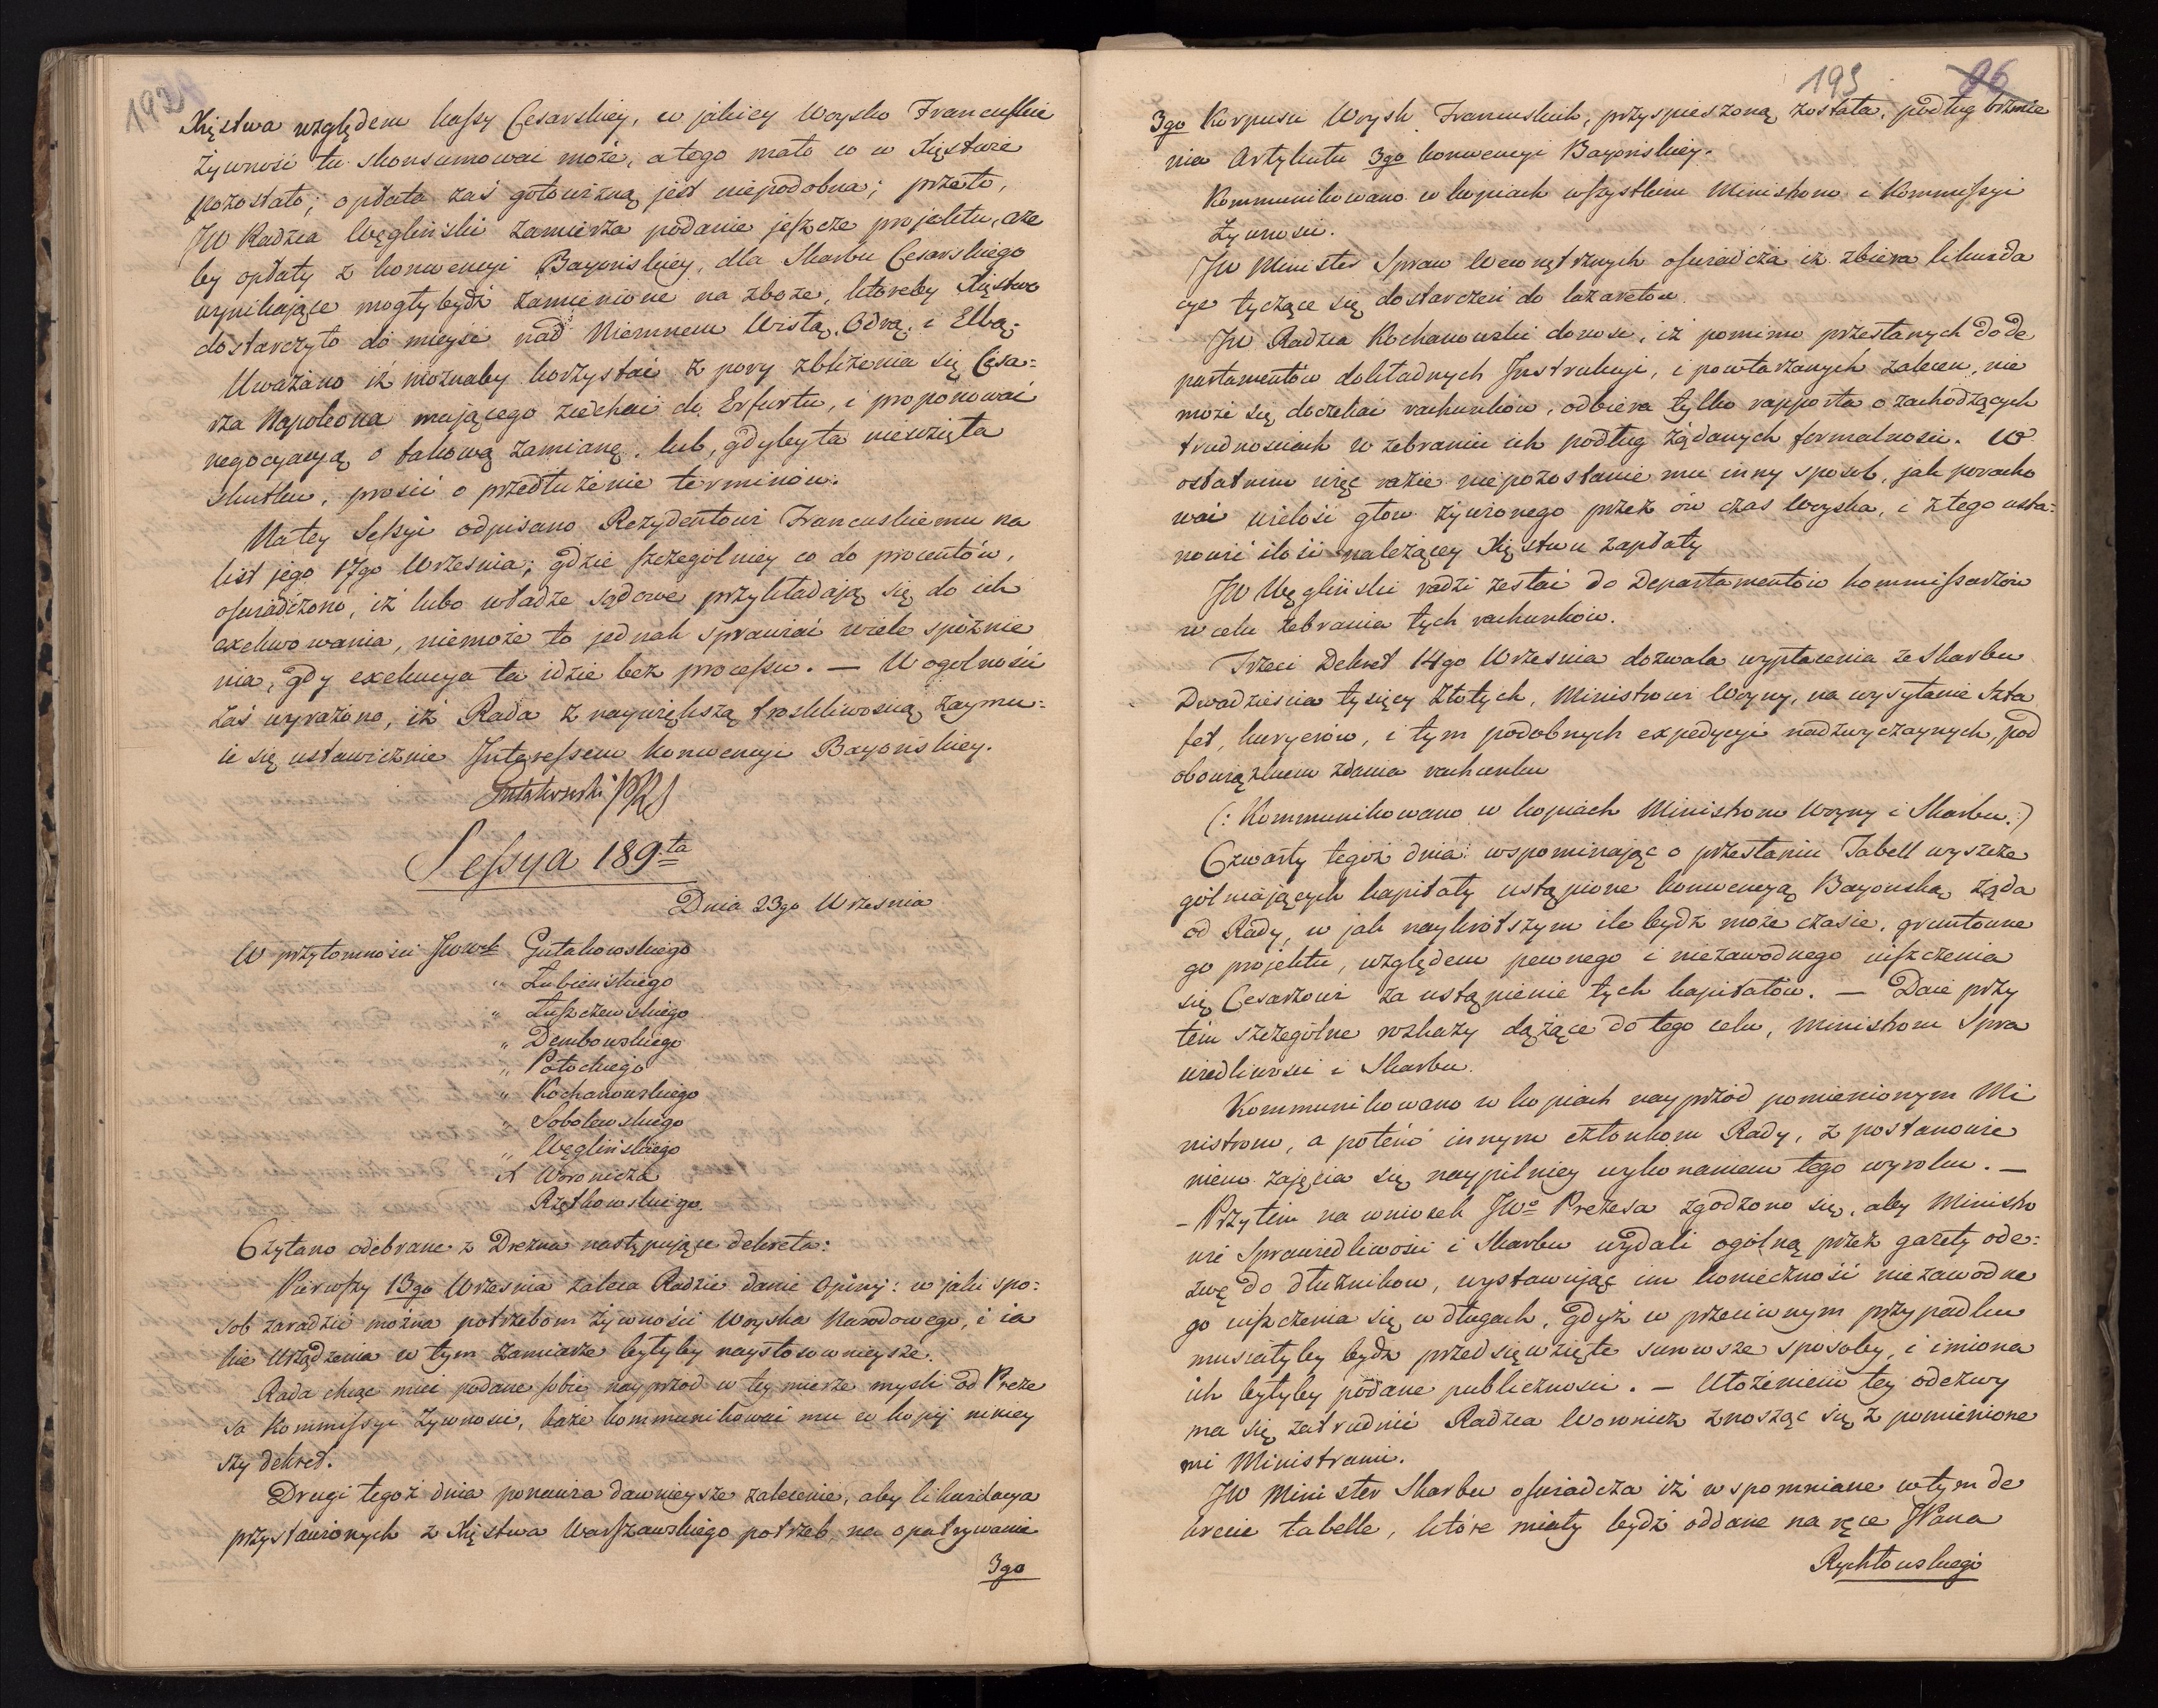 192
Xięstwa względem kassy Cesarskiey, w jakiey Woysko Francuskie
żywność tu skonsumować może, a tego mało co w Xięstwie
pozostało; opłata zaś gotowizną jest niepodobna; przeto,
JW Radzca Węgliński zamierza podanie jeszcze projektu, aże
by opłaty z konwencyi Bayońskiey, dla Skarbu Cesarskiego
wynikające mogły bydź zamienione na zboże, któreby Xięstwo
dostarczyło do mieysc nad Niemnem Wisłą, Odrą, i Elbą.
Uważano iż możnaby korzystać z pory zbliżenia się Cesa=
rza Napoleona mającego ziechać do Erfurtu, i proponować
negocyacyą o takową zamianę, lub, gdyby ta niewzięła
skutku, prosić o przedłużenie terminów.
Na tey Sessyi odpisano Rezydentowi Francuskiemu na
list jego 17go Września; gdzie szczególniey co do procentów,
oświadczono, iż lubo władze sądowe przykładają się do ich
exekwowania, niemoże to jednak sprawiać wiele spóźnie
nia, gdy exekucya ta idzie bez processu. — W ogólności
zaś wyrażono, iż Rada z naywiększą troskliwością zaymu=
ie się ustawicznie Interessem konwencyi Bayońskiey.
Gutakowski PRS
Sessya 189ta
Dnia 23go Września
W przytomności JWWch Gutakowskiego
" Łubieńskiego
" Łuszczewskiego
" Dembowskiego
" Potockiego
" Kochanowskiego
" Sobolewskiego
" Węglińskiego
X Woronicza
Rzętkowskiego.
Czytano odebrane z Drezna następujące dekreta:
Pierwszy 13go Września zaleca Radzie danie Opinij: w jaki spo=
sob zaradzić można potrzebom żywności Woyska Narodowego, i ia
kie urządzenia w tym zamiarze byłyby naystosownieysze.
Rada chcąc mieć podane sobie nayprzód w tey mierze mysli od Preze
sa Kommissyi Żywnosci, każe kommunikować mu w kopij niniey
szy dekret.
Drugi tegoż dnia ponawia dawnieysze zalecenie, aby likwidacya
przystawionych z Xięstwa Warszawskiego potrzeb, na opatrywanie
3go
193
96
3go Korpusu Woysk Francuskich, przyspieszoną została, podług brzmie
nia Artykułu 3go konwencyi Bayońskiey.
Kommunikowano w kopiach wszystkim Ministrom i Kommissyi
Żywnosci.
JW Minister Spraw Wewnętrznych oświadcza iż zbiera likwida
cye tyczące się dostarczeń do lazaretów.
JW Radzca Kochanowski donosi, iż pomimo przesłanych do de
partamentów dokładnych Instrukcyi, i powtarzanych zaleceń, nie
może się doczekać rachunków, odbiera tylko rapporta o zachodzących
trudnosciach w zebraniu ich podług żądanych formalnosci. W
ostatnim więc razie niepozostanie mu inny sposób, jak poracho
wać wielość głów żywionego przez ów czas Woyska, i z tego usta=
nowić ilość należącey Xięstwu zapłaty
JW Węgliński radzi zesłać do Departamentów kommissarzów
w celu zebrania tych rachunków.
Trzeci Dekret 14go Września dozwala wypłacenia ze Skarbu
Dwadzieścia tysięcy Złotych, Ministrowi Woyny, na wysyłanie Szta
fet, kuryerów, i tym podobnych expedycyi nadzwyczaynych, pod
obowiązkiem zdania rachunku
(: Kommunikowano w kopiach Ministrom Woyny i Skarbu. :)
Czwarty tegoż dnia wspominając o przesłaniu Tabell wyszcze
gólniających kapitały ustąpione konwencyą Bayońską żąda
od Rady, w jak naykrótszym ile bydź może czasie, gruntowne
go projektu, względem pewnego i niezawodnego uiszczenia
się Cesarzowi za ustąpienie tych kapitałów. — Daie przy
tém szczególne rozkazy dążące do tego celu, Ministrom Spra
wiedliwości i Skarbu.
Kommunikowano w kopiach nayprzód pomienionym Mi
nistrom, a potém innym członkom Rady, z postanowie
niem zajęcia się naypilniey wykonaniem tego wyroku. —
– Przytém na wniosek JWo Prezesa zgodzono się, aby Ministro
wie Sprawiedliwości i Skarbu wydali ogólną przez gazety ode=
zwę do dłużników, wystawując im konieczność niezawodne
go uiszczenia się w długach, gdyż w przeciwnym przypadku
musiałyby bydź przedsięwzięte surowsze sposoby, i imiona
ich byłyby podane publiczności. — Ułożeniem tey odezwy
ma się zatrudnić Radzca Woronicz znosząc się z pomienione
mi Ministrami.
JW Minister Skarbu oświadcza iż wspomniane w tym de
krecie tabelle, które miały bydź oddane na ręce JPana
Rychłowskiego